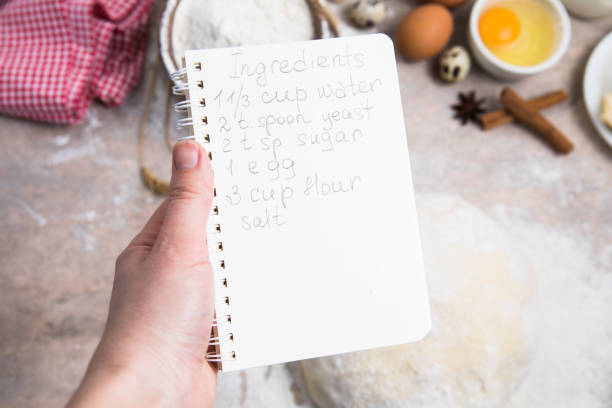 Ingredients
1 1/3 cup water
2 t.spoon yeast
2 t sp. sugar
1 egg
3 cup flour
salt